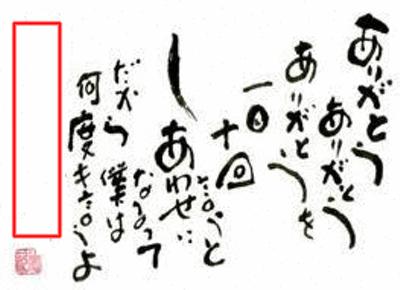 ありがとう
ありがとう
ありがとうを
一日
十回
言うと
しあわせに
なるって
だから僕は
何度も言うよ